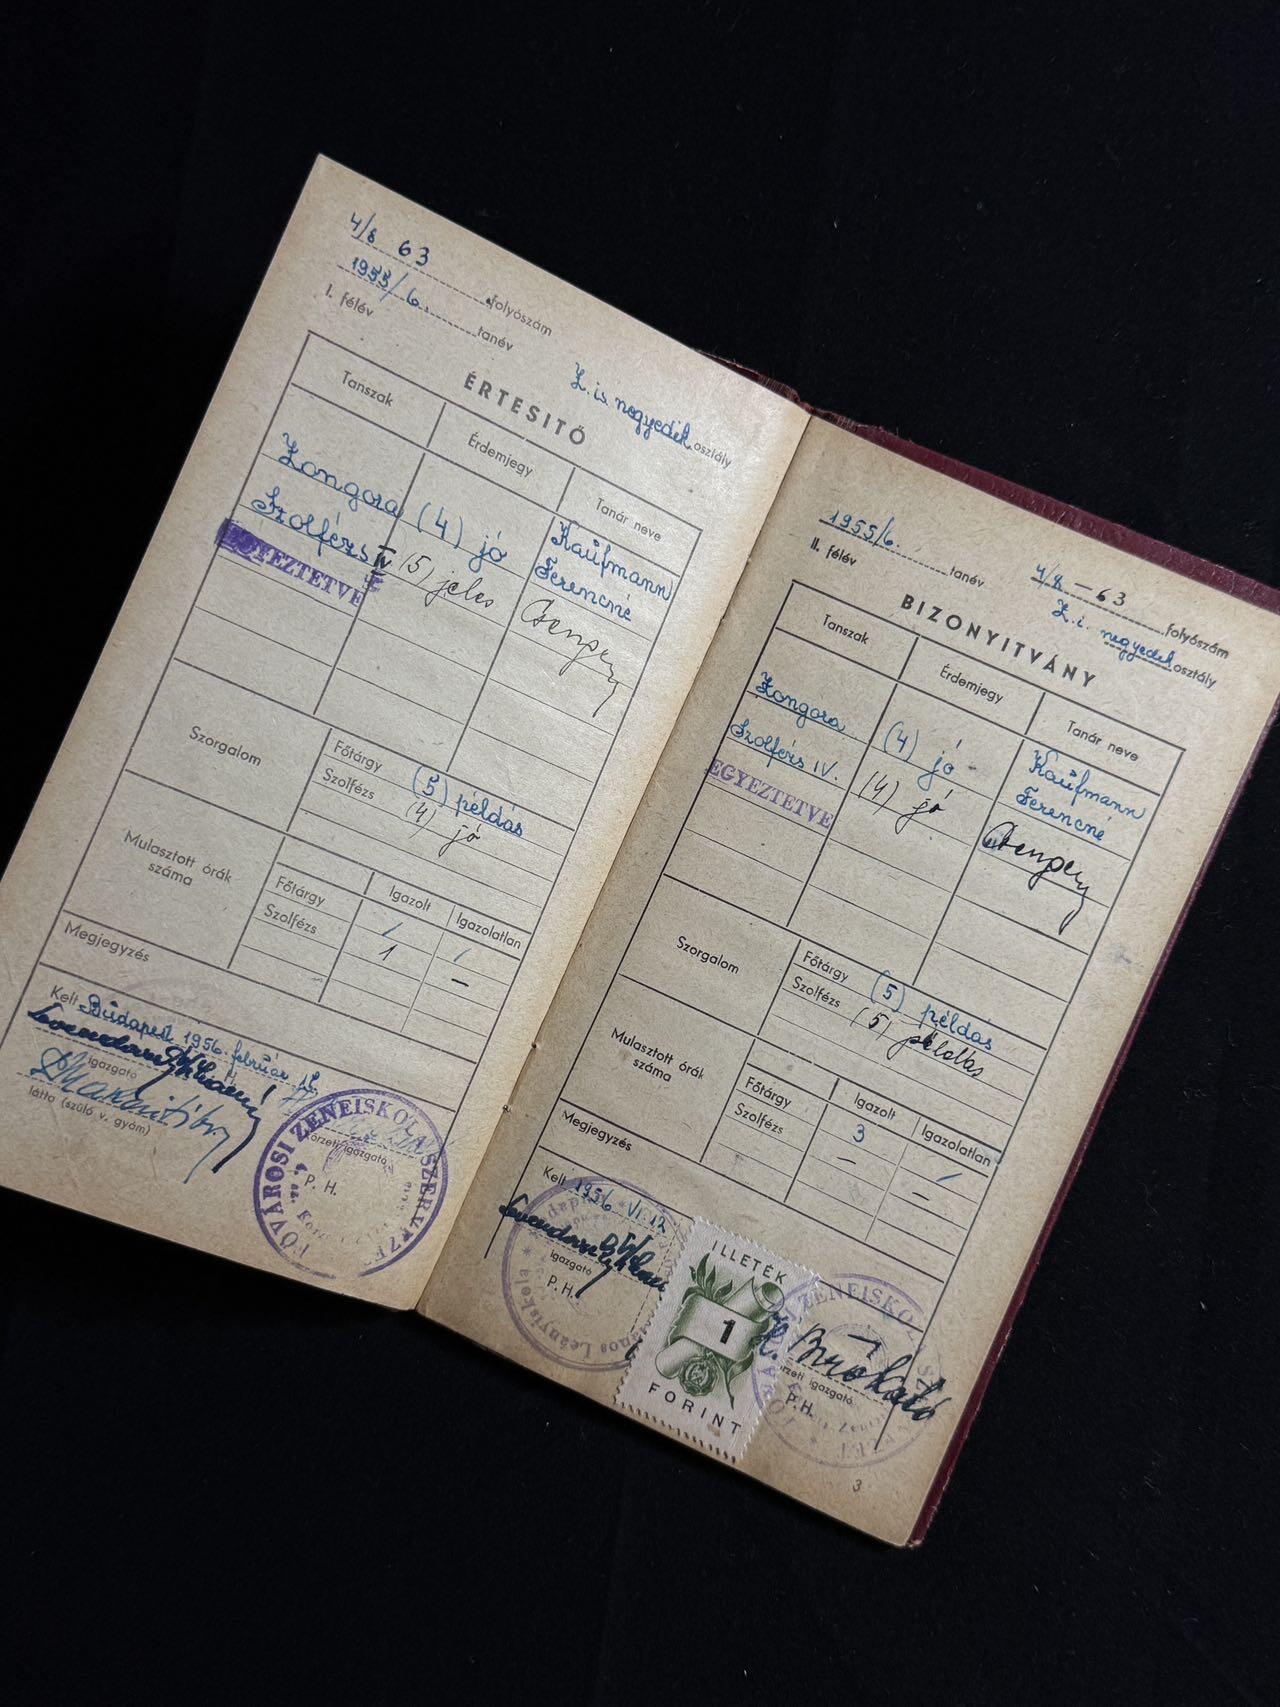 4/8 63 folyószám
1955/6. tanév
I. félév
ÉRTESITŐ
Z. is. negyedik osztály
Tanszak Érdemjegy Tanár neve
Zongora (4) jó Kaufmann Ferencné
Szolfézs IV (5) jeles Csengery
EGYEZTETVE
Szorgalom
Főtárgy (5) példás
Szolfézs (4) jó
Mulasztott órák száma
Igazolt Igazolatlan
Főtárgy / /
Szolfézs 1 –
Megjegyzés
Kelt Budapest 1956. február
igazgató
látta (szülő v. gyám)
körzeti igazgató
P. H.
FŐVÁROSI ZENEISKOLA SZERVEZET
1955/6. tanév
II. félév
4/8 – 63 folyószám
Z. i. negyedik osztály
BIZONYITVÁNY
Tanszak Érdemjegy Tanár neve
Zongora (4) jó Kaufmann Ferencné
Szolfézs IV. (4) jó Csengery
EGYEZTETVE
Szorgalom
Főtárgy (5) példás
Szolfézs (5) példás
Mulasztott órák száma
Igazolt Igazolatlan
Főtárgy 3 /
Szolfézs – –
Megjegyzés
Kelt 1956. VI. 12
igazgató
P. H.
Leányiskola
ILLETÉK
1
FORINT
körzeti igazgató
P. H.
ZENEISKOLA
3